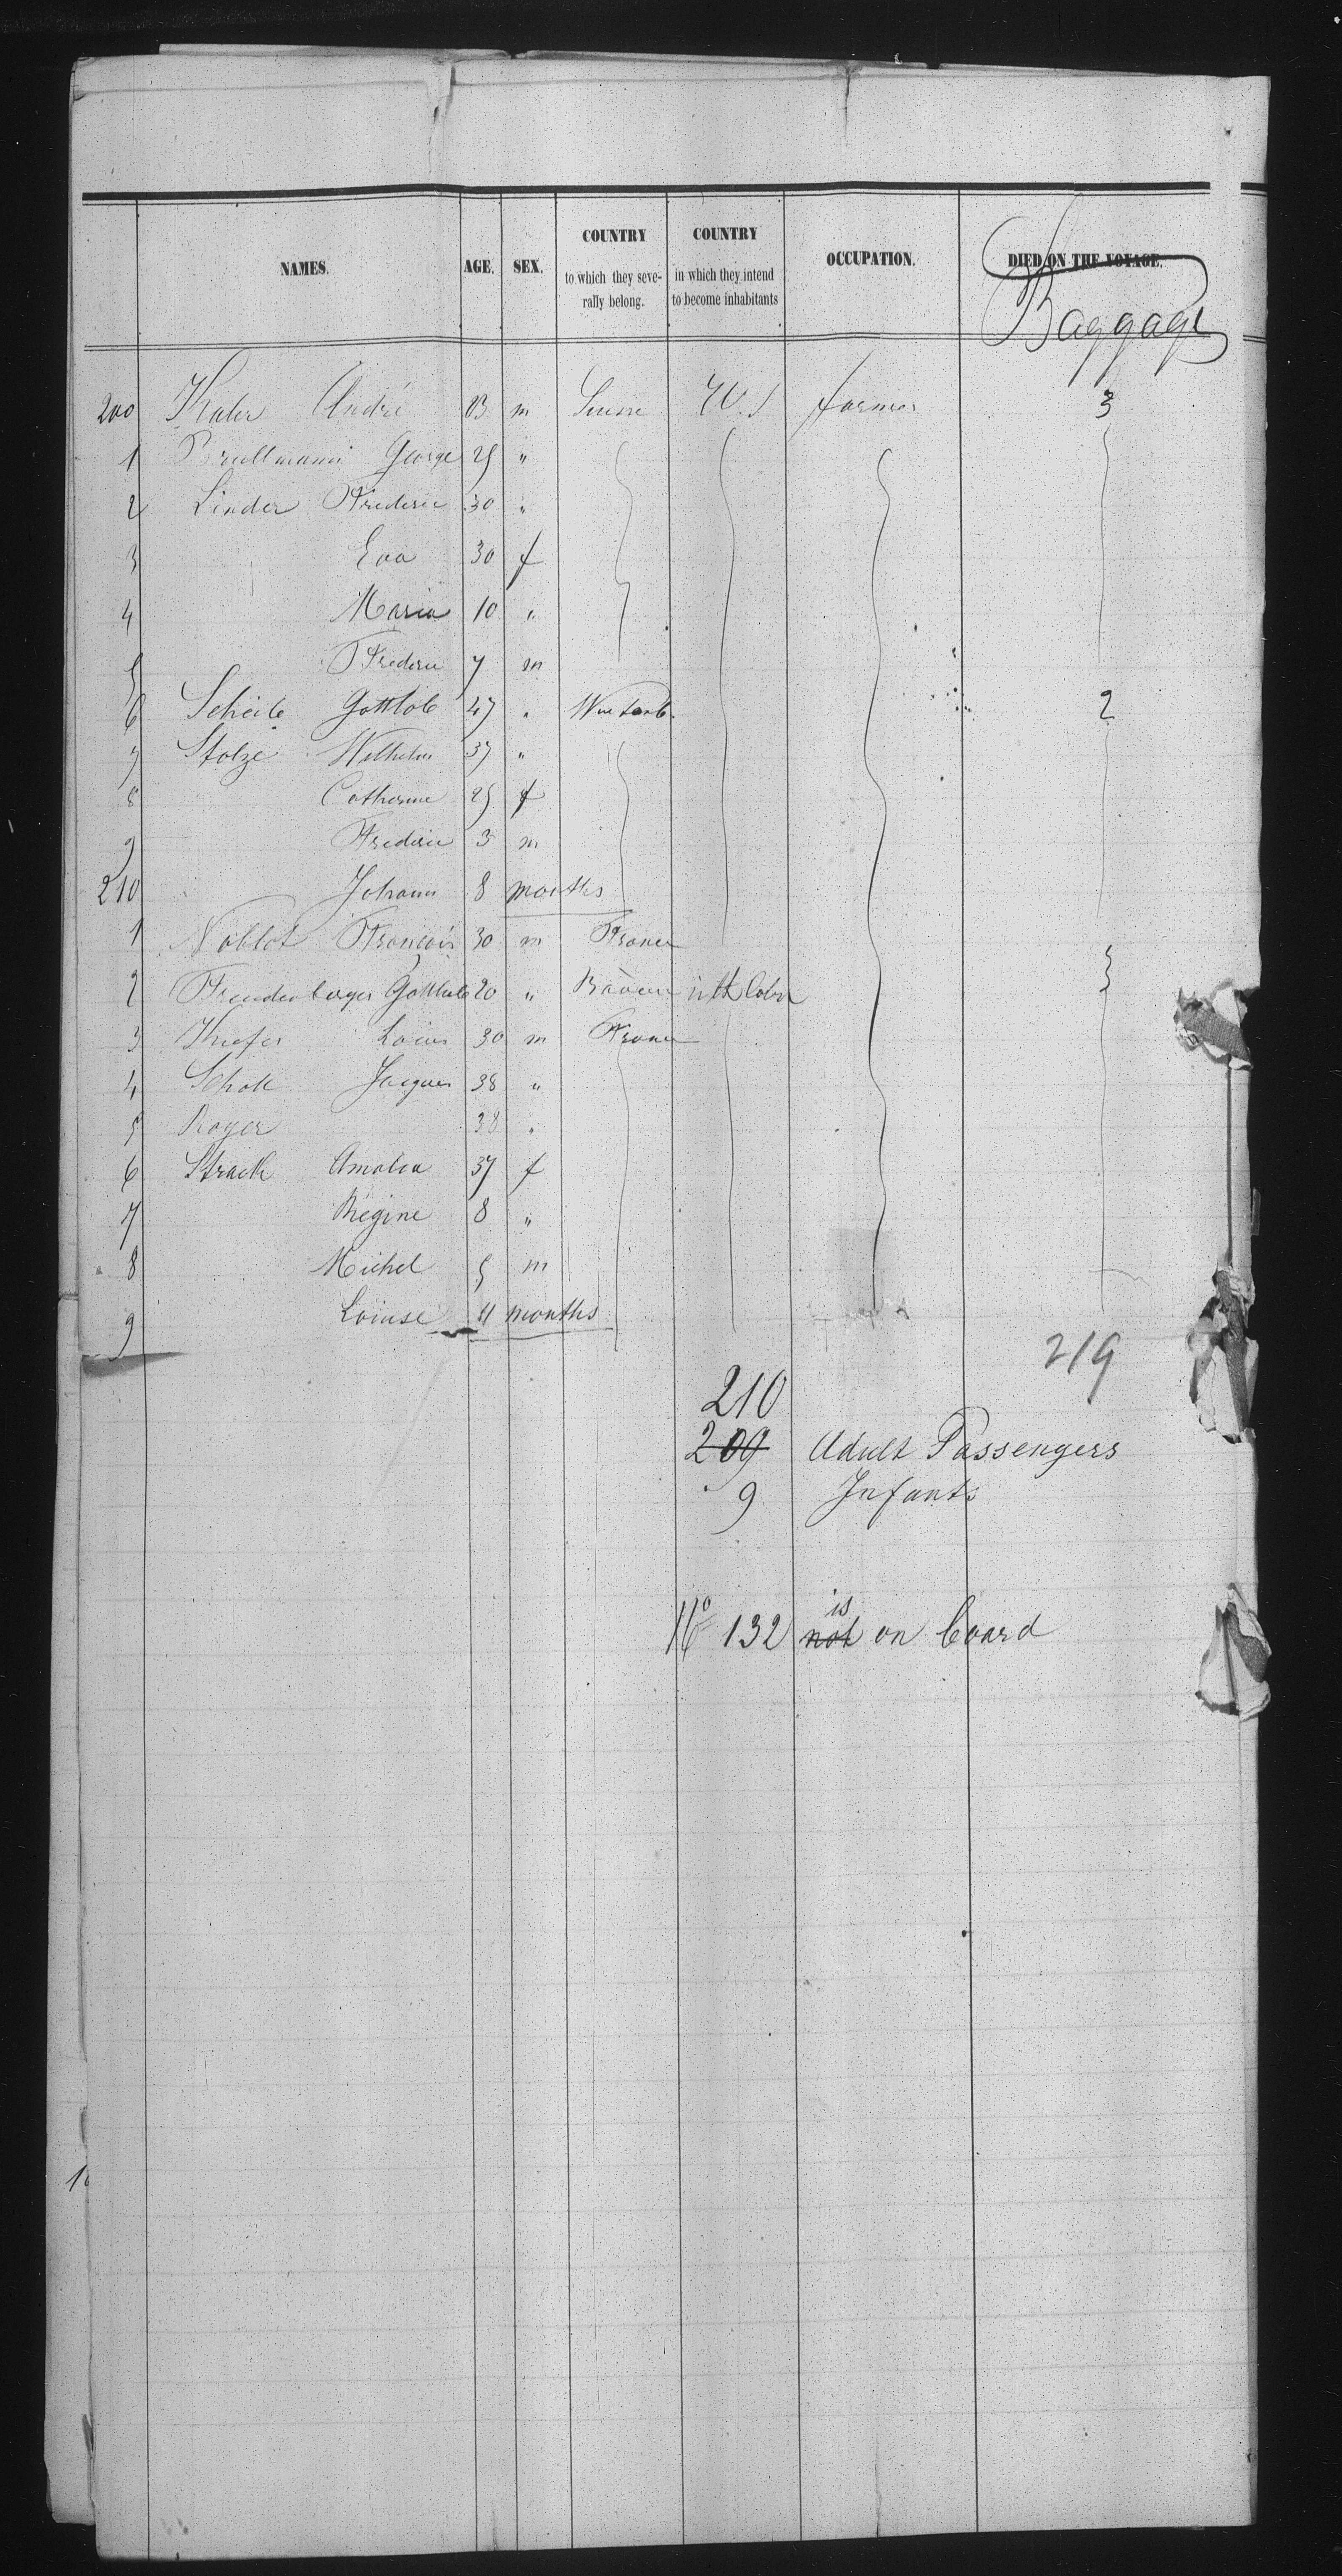 NAMES. AGE. SEX. COUNTRY to which they severally belong. COUNTRY in which they intend to become inhabitants OCCUPATION. DIED ON THE VOYAGE.
Baggage
200 André m Suisse U.S farmer 3
1 George 25 "
2 Linder Frederic 30 "
3 Eva 30 f
4 Maria 10 "
5 Frederic 7 m
6 Gottlob 47 " 2
7 Stolze Wilhelm 37 "
8 Catherine 25 f
9 Frederic 3 m
210 Johann 8 months
1 Noblot François 30 m France 3
2 Freudenberger Gottlieb 20 "
3 Kiefer Louis 30 m France
4 Jacques 38 "
5 Royer 38 "
6 Strack Amalia 37 f
7 Régine 8 "
8 Michel 5 m
9 Louise 11 months
219
210
209 Adult Passengers
9 Infants
is
No 132 not on board